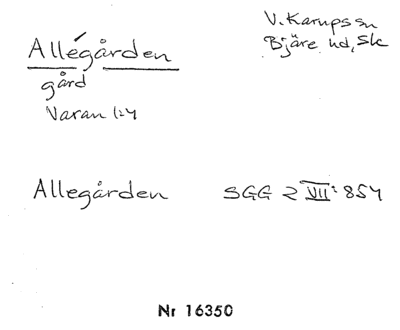 Allégården
V. Karupssn
Bjäre hd, Sk
gård
Varan 1:4
Allegården SGG 2 VII: 854
Nr 16350